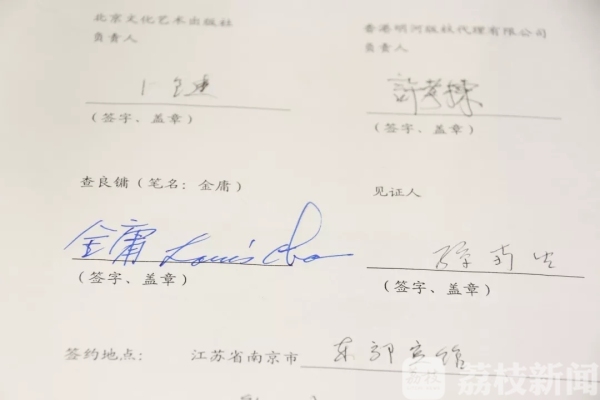 北京文化艺术出版社
负责人
(签字、盖章)
香港明河版社代理有限公司
负责人
許孝
(签字、盖章)
查良镛(笔名:金庸)
金庸 Louis Cha
(签字、盖章)
见证人
(签字、盖章)
签约地点: 江苏省南京市 东郊宾馆
荔枝新闻